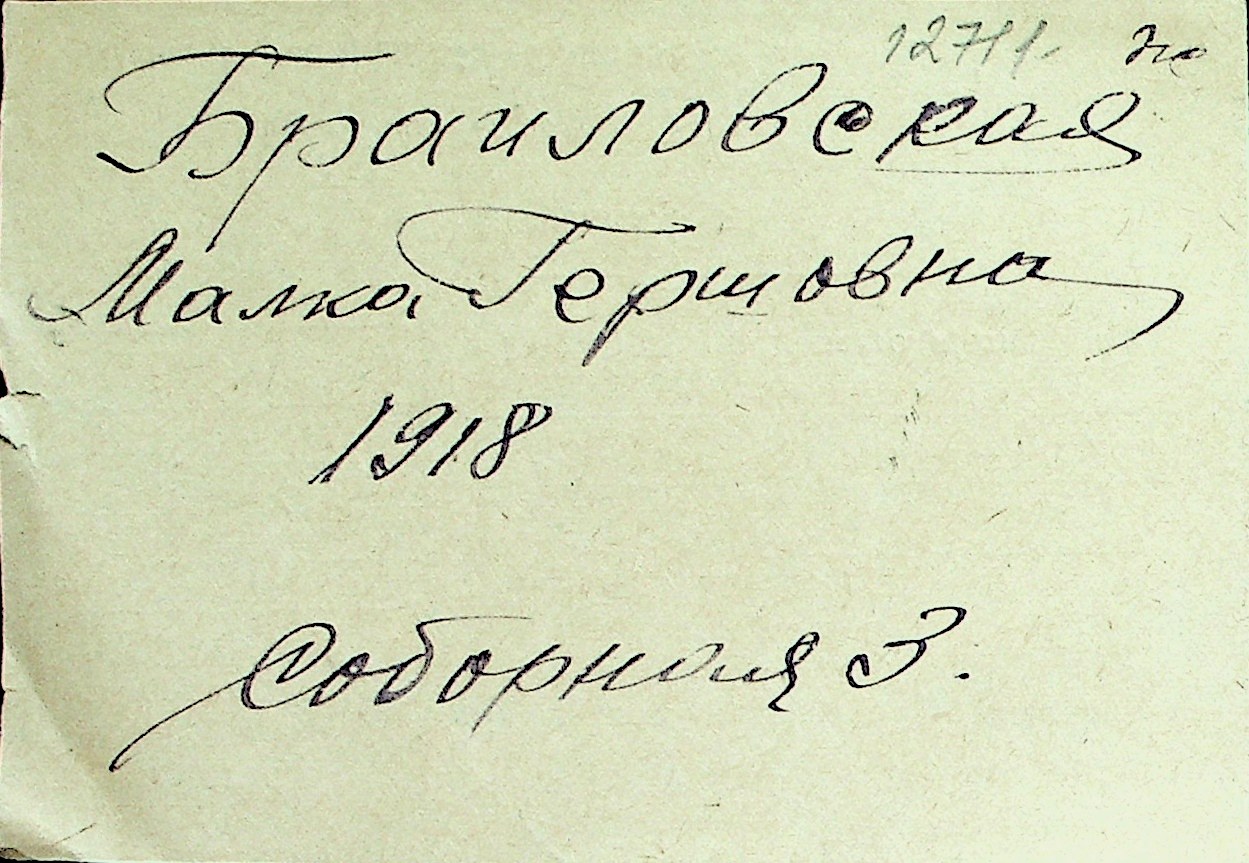 Браиловская
Малка Гершовна
1918
Соборная 3.